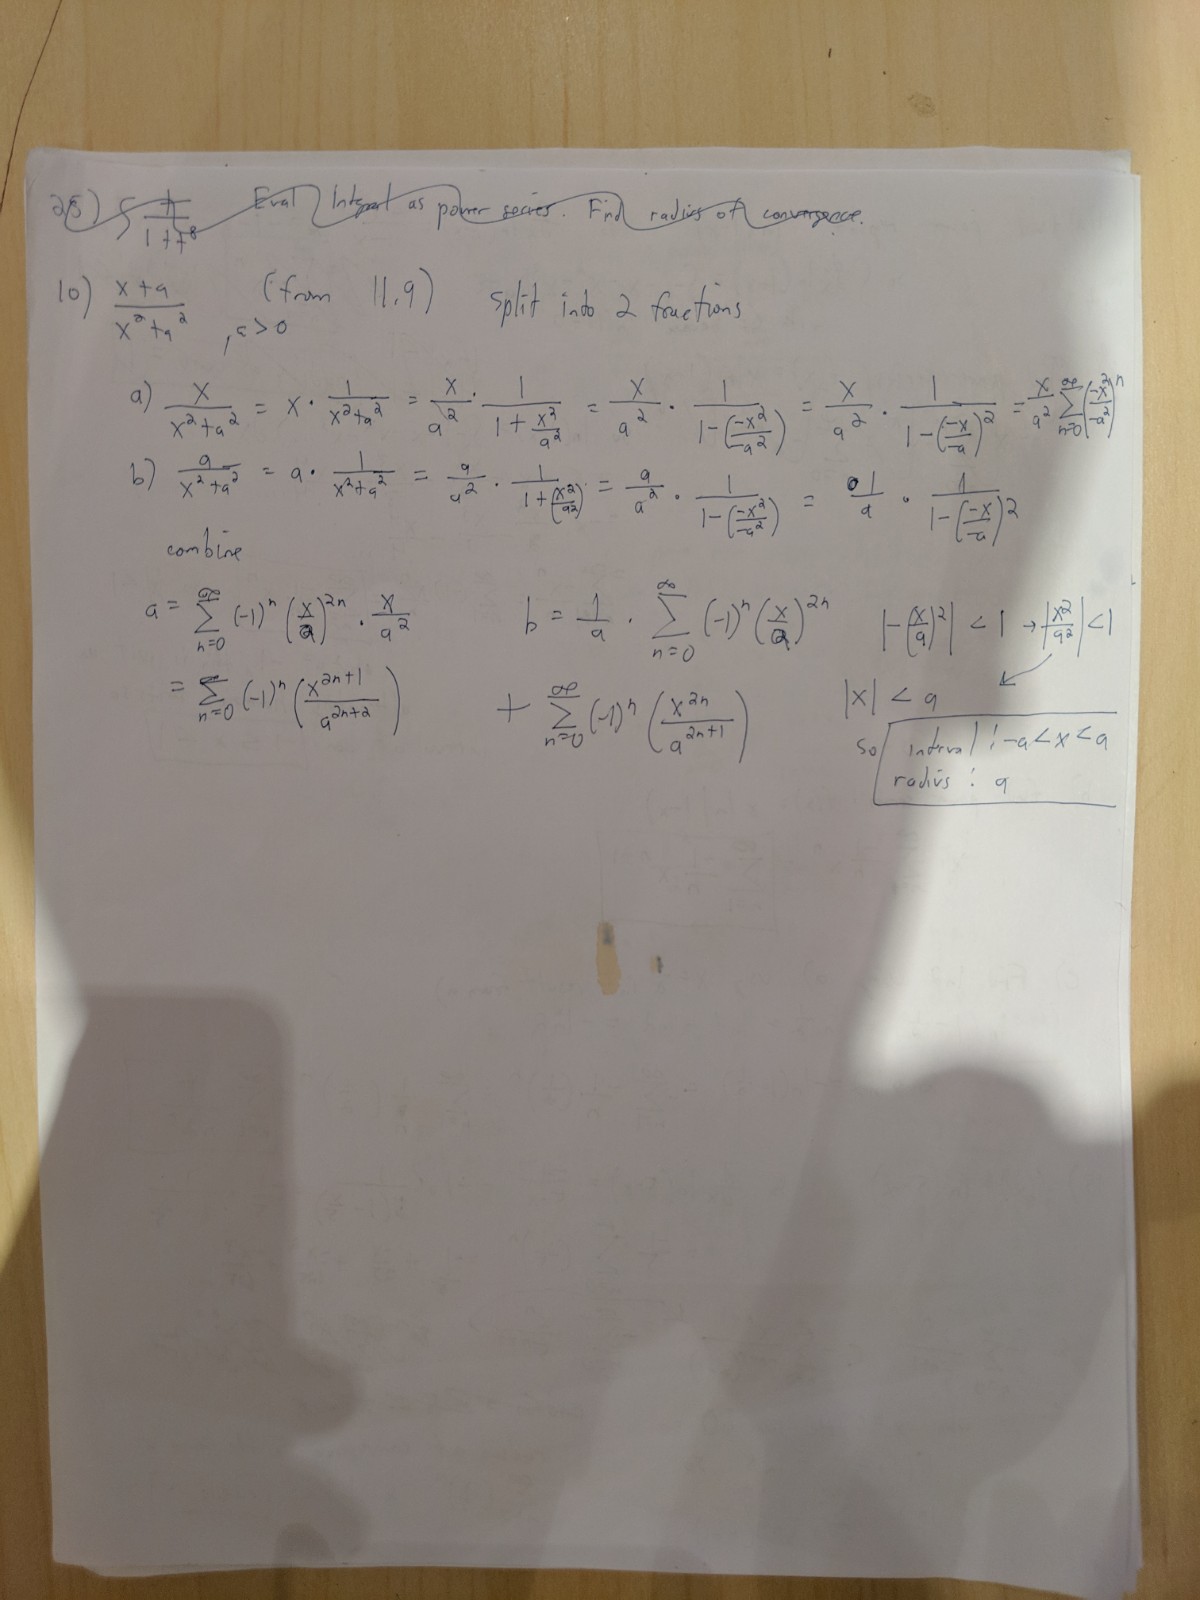 25) ∫ t/(1+t^8) Eval Integral as power series. Find radius of convergence.
10) (x+a)/(x^2+a^2), a>0 (from 11.9) split into 2 fractions
a) x/(x^2+a^2) = x · 1/(x^2+a^2) = x/a^2 · 1/(1+x^2/a^2) = x/a^2 · 1/(1-(-x^2/-a^2)) = x/a^2 · 1/(1-(-x/-a)^2) = x/a^2 ∑_{n=0}^∞ (-x^2/-a^2)^n
b) a/(x^2+a^2) = a · 1/(x^2+a^2) = a/a^2 · 1/(1+(x^2/a^2)) = a/a^2 · 1/(1-(-x^2/-a^2)) = 1/a · 1/(1-(-x/-a)^2)
combine
a = ∑_{n=0}^∞ (-1)^n (x/a)^{2n} · x/a^2 b = 1/a · ∑_{n=0}^∞ (-1)^n (x/a)^{2n} |-(x/a)^2| < 1 → |x^2/a^2| < 1
= ∑_{n=0}^∞ (-1)^n (x^{2n+1}/a^{2n+2}) + ∑_{n=0}^∞ (-1)^n (x^{2n}/a^{2n+1}) |x| < a
so interval: -a<x<a
radius: a